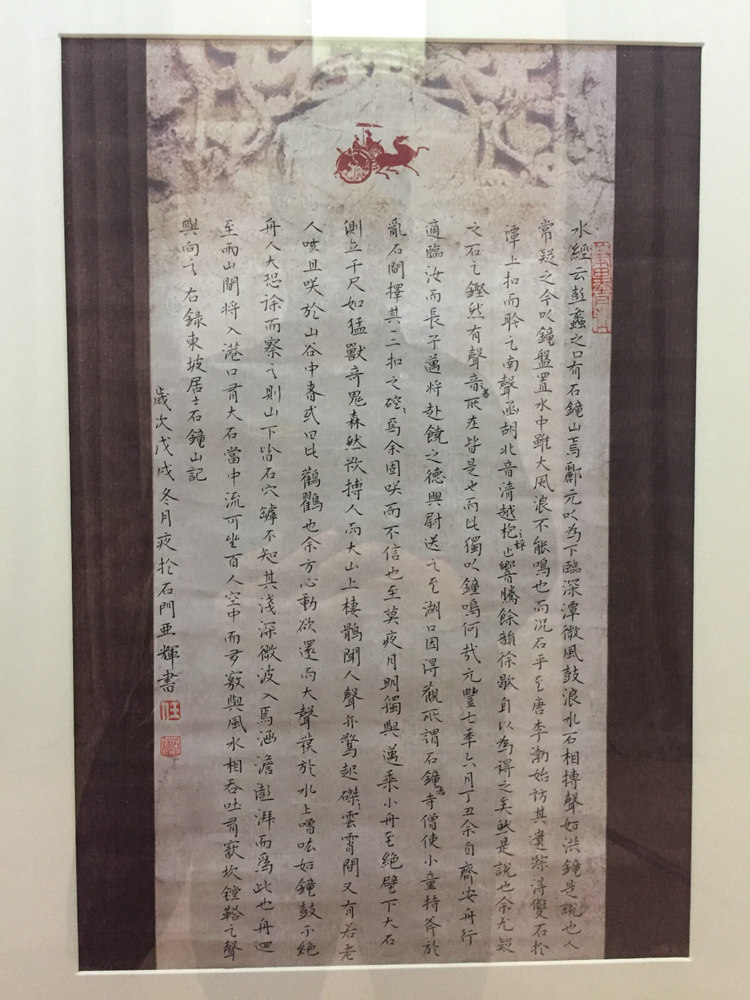 水經云彭蠡之口有石鐘山焉酈元以為下臨深潭微風鼓浪水石相搏聲如洪鐘是說也人
常疑之今以鐘盤置水中雖大風浪不能鳴也而況石乎至唐李渤始訪其遺踪得雙石於
潭上扣而聆之南聲函胡北音清越枹止響騰餘韻徐歇自以為得之矣然是說也余尤疑
之石之鏗然有聲音者所在皆是也而此獨以鐘鳴何哉元豐七年六月丁丑余自齊安舟行
適臨汝而長子邁將赴饒之德興尉送之至湖口因得觀所謂石鐘者寺僧使小童持斧於
亂石間擇其一二扣之硿硿焉余固咲而不信也至莫夜月明獨與邁乘小舟至絕壁下大石
側立千尺如猛獸奇鬼森然欲搏人而大山上棲鶻聞人聲亦驚起磔磔雲霄間又有若老
人咳且咲於山谷中者或曰此鸛鶴也余方心動欲還而大聲發於水上噌吰如鐘鼓不絕
舟人大恐徐而察之則山下皆石穴罅不知其淺深微波入焉涵澹澎湃而為此也舟迴
至兩山間將入港口有大石當中流可坐百人空中而多竅與風水相吞吐有窾坎鏜鞳之聲
與向之 右錄東坡居士石鐘山記
歲次戊戌冬月夜於石門亞輝書